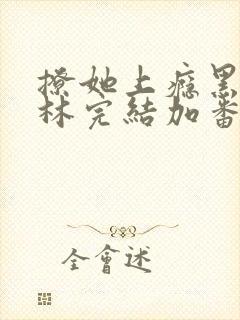 撩她上瘾黑
林完結加番
全會述